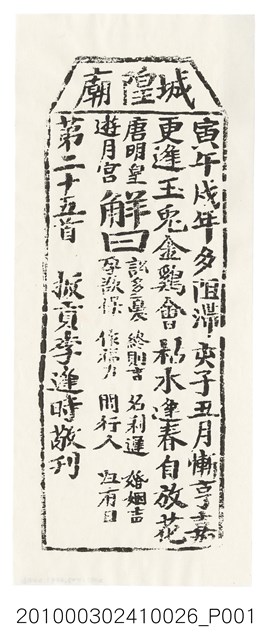 城隍廟
寅午戌年多阻滯亥子丑月漸亨嘉
更逢玉兔金鷄會枯木逢春自放花
唐明皇
遊月宮
解曰
訟多憂 終則吉 名利遲 婚姻吉
孕 作福力 問行人 有日
第二十五首 拔貢李逢時敬刊
201000302410026_P001